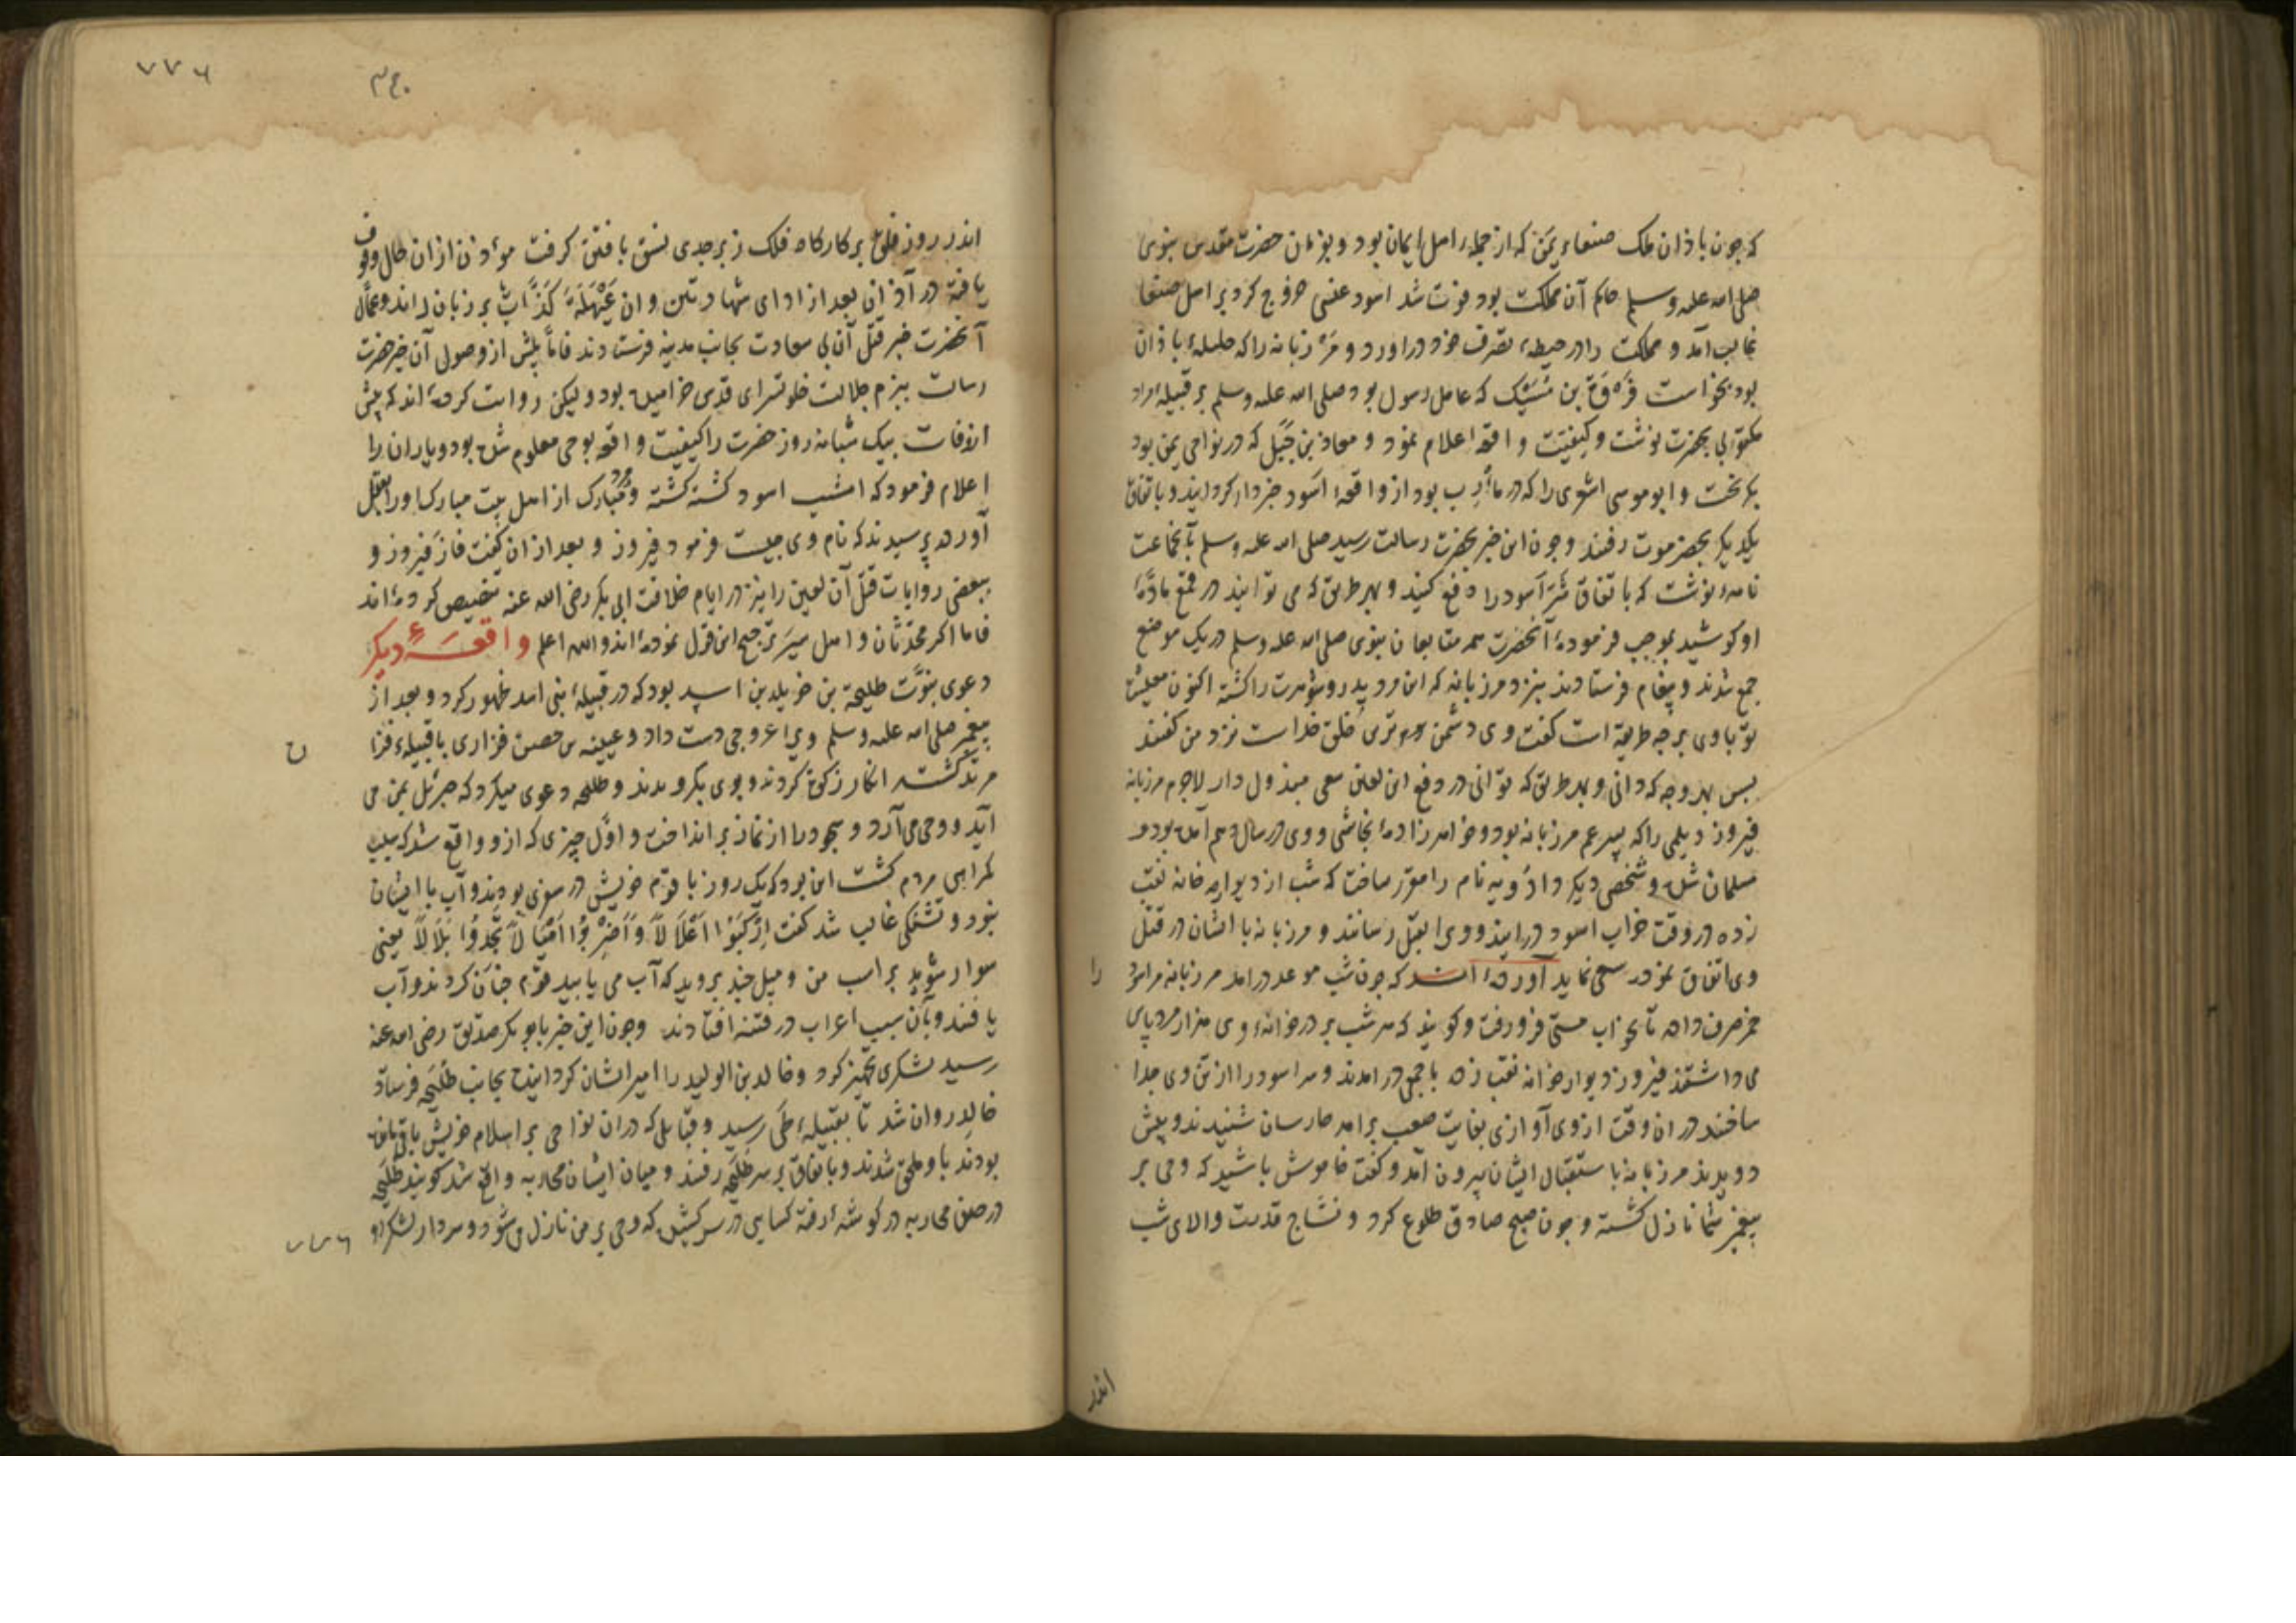 که چون باذان ملک صنعاء یمن که از جمله اهل ایمان بود و بفرمان حضرت مقدس نبوی
صلی الله علیه وسلم حاکم آن مملکت بود فوت شد اسود عنسی خروج کرد بر اهل صنعا
غالب آمد و مملکت را در حیطهٔ تصرف خود دراورد و مرزبانه را که حلیلهٔ باذان
بود بخواست فروة بن مسیک که عامل رسول بود صلی الله علیه وسلم بر قبیلهٔ مراد
مکتوبی بحضرت نوشت و کیفیت واقعه اعلام نمود و معاذ بن جبل که در نواحی یمن بود
بکریخت و ابو موسی اشعری را که در مأرب بود از واقعهٔ اسود خبردار کردانید و باتفاق
یکدیکر بحضرموت رفتند و چون این خبر بحضرت رسالت رسید صلی الله علیه وسلم بآنجماعت
نامهٔ نوشت که باتفاق شر اسود را دفع کنید و بهر طریق که می توانید در قمع مادهٔ
او کوشید بموجب فرمودهٔ آنحضرت همه متابعان نبوی صلی الله علیه وسلم در یک موضع
جمع شدند و پیغام فرستادند بنزد مرزبانه که این مرد پدر و شوهرت را کشته اکنون معیشت
تو با وی بر چه طریقه است کفت وی دشمن ترین خلق خداست نزد من کفتند
پس بهر وجه که دانی و بهر طریق که توانی در دفع این لعین سعی مبذول دار لاجرم مرزبانه
فیروز دیلمی را که پسر عم مرزبانه بود و خواهرزادهٔ نجاشی و وی در سال دهم آمده بود و
مسلمان شده و شخصی دیکر دادویه نام را مقرر ساخت که شب از دیوار خانه نقب
زده در وقت خواب اسود درایند و ویرا بقتل رسانند و مرزبانه با ایشان در قتل
وی اتفاق نموده سعی نماید آورده اند که چون شب موعد درامد مرزبانه مر اسود را
خمر صرف داد تا بخواب مستی فرو رفت و کویند که هر شب بر در خانهٔ وی هزار مرد پاس
می داشتند فیروز دیوار خانه نقب زده با جمعی درامدند و سر اسود را از تن وی جدا
ساختند در ان وقت از وی آوازی بغایت صعب برامد حارسان شنیدند و پیش
دویدند مرزبانه باستقبال ایشان بیرون آمد و کفت خاموش باشید که وحی بر
پیغمبر شما نازل کشته و چون صبح صادق طلوع کرد و نساج قدرت والای شب
اندر
۷۷۶
اندر روز بر کارکاه فلک زبرجدی نسق بافتن کرفت موذن از ان حال وقوف
یافته در آذان بعد از ادای شهادتین و ان عیهلة کذاب بر زبان راند و عمال
آنحضرت خبر قتل آن بی سعادت بجانب مدینه فرستادند فاما پیش از وصول آن خبر حضرت
رسالت ببزم جلالت خلوتسرای قدس خرامیده بود ولیکن روایت کرده اند که پیش
از وفات بیک شبانه روز حضرت را کیفیت واقعه بوحی معلوم شده بود و یاران را
اعلام فرمود که امشب اسود کشته کشته و مرد مبارک از اهل بیت مبارک او را بقتل
آورده پرسیدند که نام وی چیست فرمود فیروز و بعد از ان کفت فاز فیروز و
ببعضی روایات قتل آن لعین را نیز در ایام خلافت ابی بکر رضی الله عنه تخصیص کرده اند
فاما اکثر محدثان و اهل سیر ترجیح این قول نموده اند والله اعلم واقعهٔ دیکر
دعوی نبوت طلیحة بن خویلد بن اسد بود که در قبیلهٔ بنی اسد ظهور کرد و بعد از
پیغمبر صلی الله علیه وسلم ویرا عروجی دست داد و عیینه بن حصن فزاری با قبیلهٔ فزا
مرتد کشته انکار زکوة کردند و بوی بکرویدند و طلیحه دعوی میکرد که جبرئیل بمن می
آید و وحی می آرد و سجود را از نماز برانداخت و اول چیزی که از و واقع شد که سبب
کمراهی مردم کشت این بود که یک روز با قوم خویش در سفری بودند و آب با ایشان
نبود و تشنکی غالب شد کفت ارکبوا اعلالا واضربوا امیالا تجدوا بلالا یعنی
سوار شوید بر اسب من و میل چند بروید که آب می یابید قوم چنان کردند و آب
یافتند و بآن سبب اعراب در فتنه افتادند و چون این خبر بابو بکر صدیق رضی الله عنه
رسید لشکری تجهیز کرد و خالد بن الولید را امیر ایشان کردانیده بجانب طلیحه فرستاد
خالد روان شد تا بقبیلهٔ طی رسید و قبایل که دران نواحی بر اسلام خویش باقی مانده
بودند باو ملحق شدند و باتفاق بر سر طلیحه رفتند و میان ایشان محاربه واقع شد کویند طلیحه
در صف محاربه در کوشهٔ رفته کسایی در سر کشید که وحی بر من نازل می شود و سردار لشکر او
۷۷۶